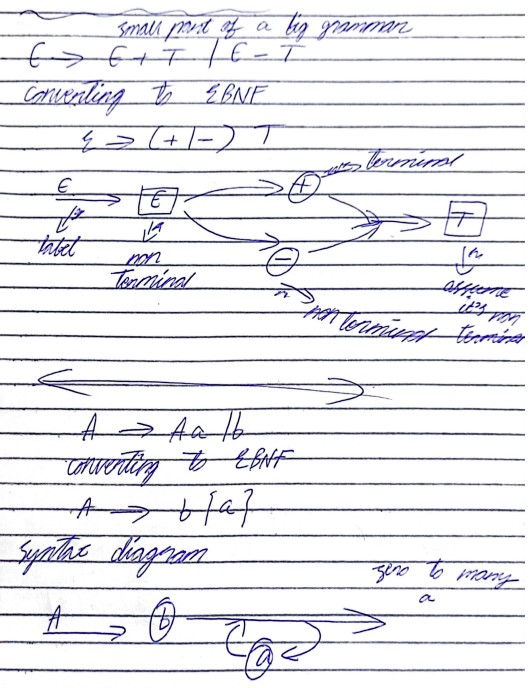 small part of a big grammar
E → E + T | E - T
converting to EBNF
E → (+|-) T
E E + terminal T
label non terminal - non terminal assume it's non terminal
A → Aa | b
converting to EBNF
A → b {a}
Syntax diagram
zero to many a
A b a